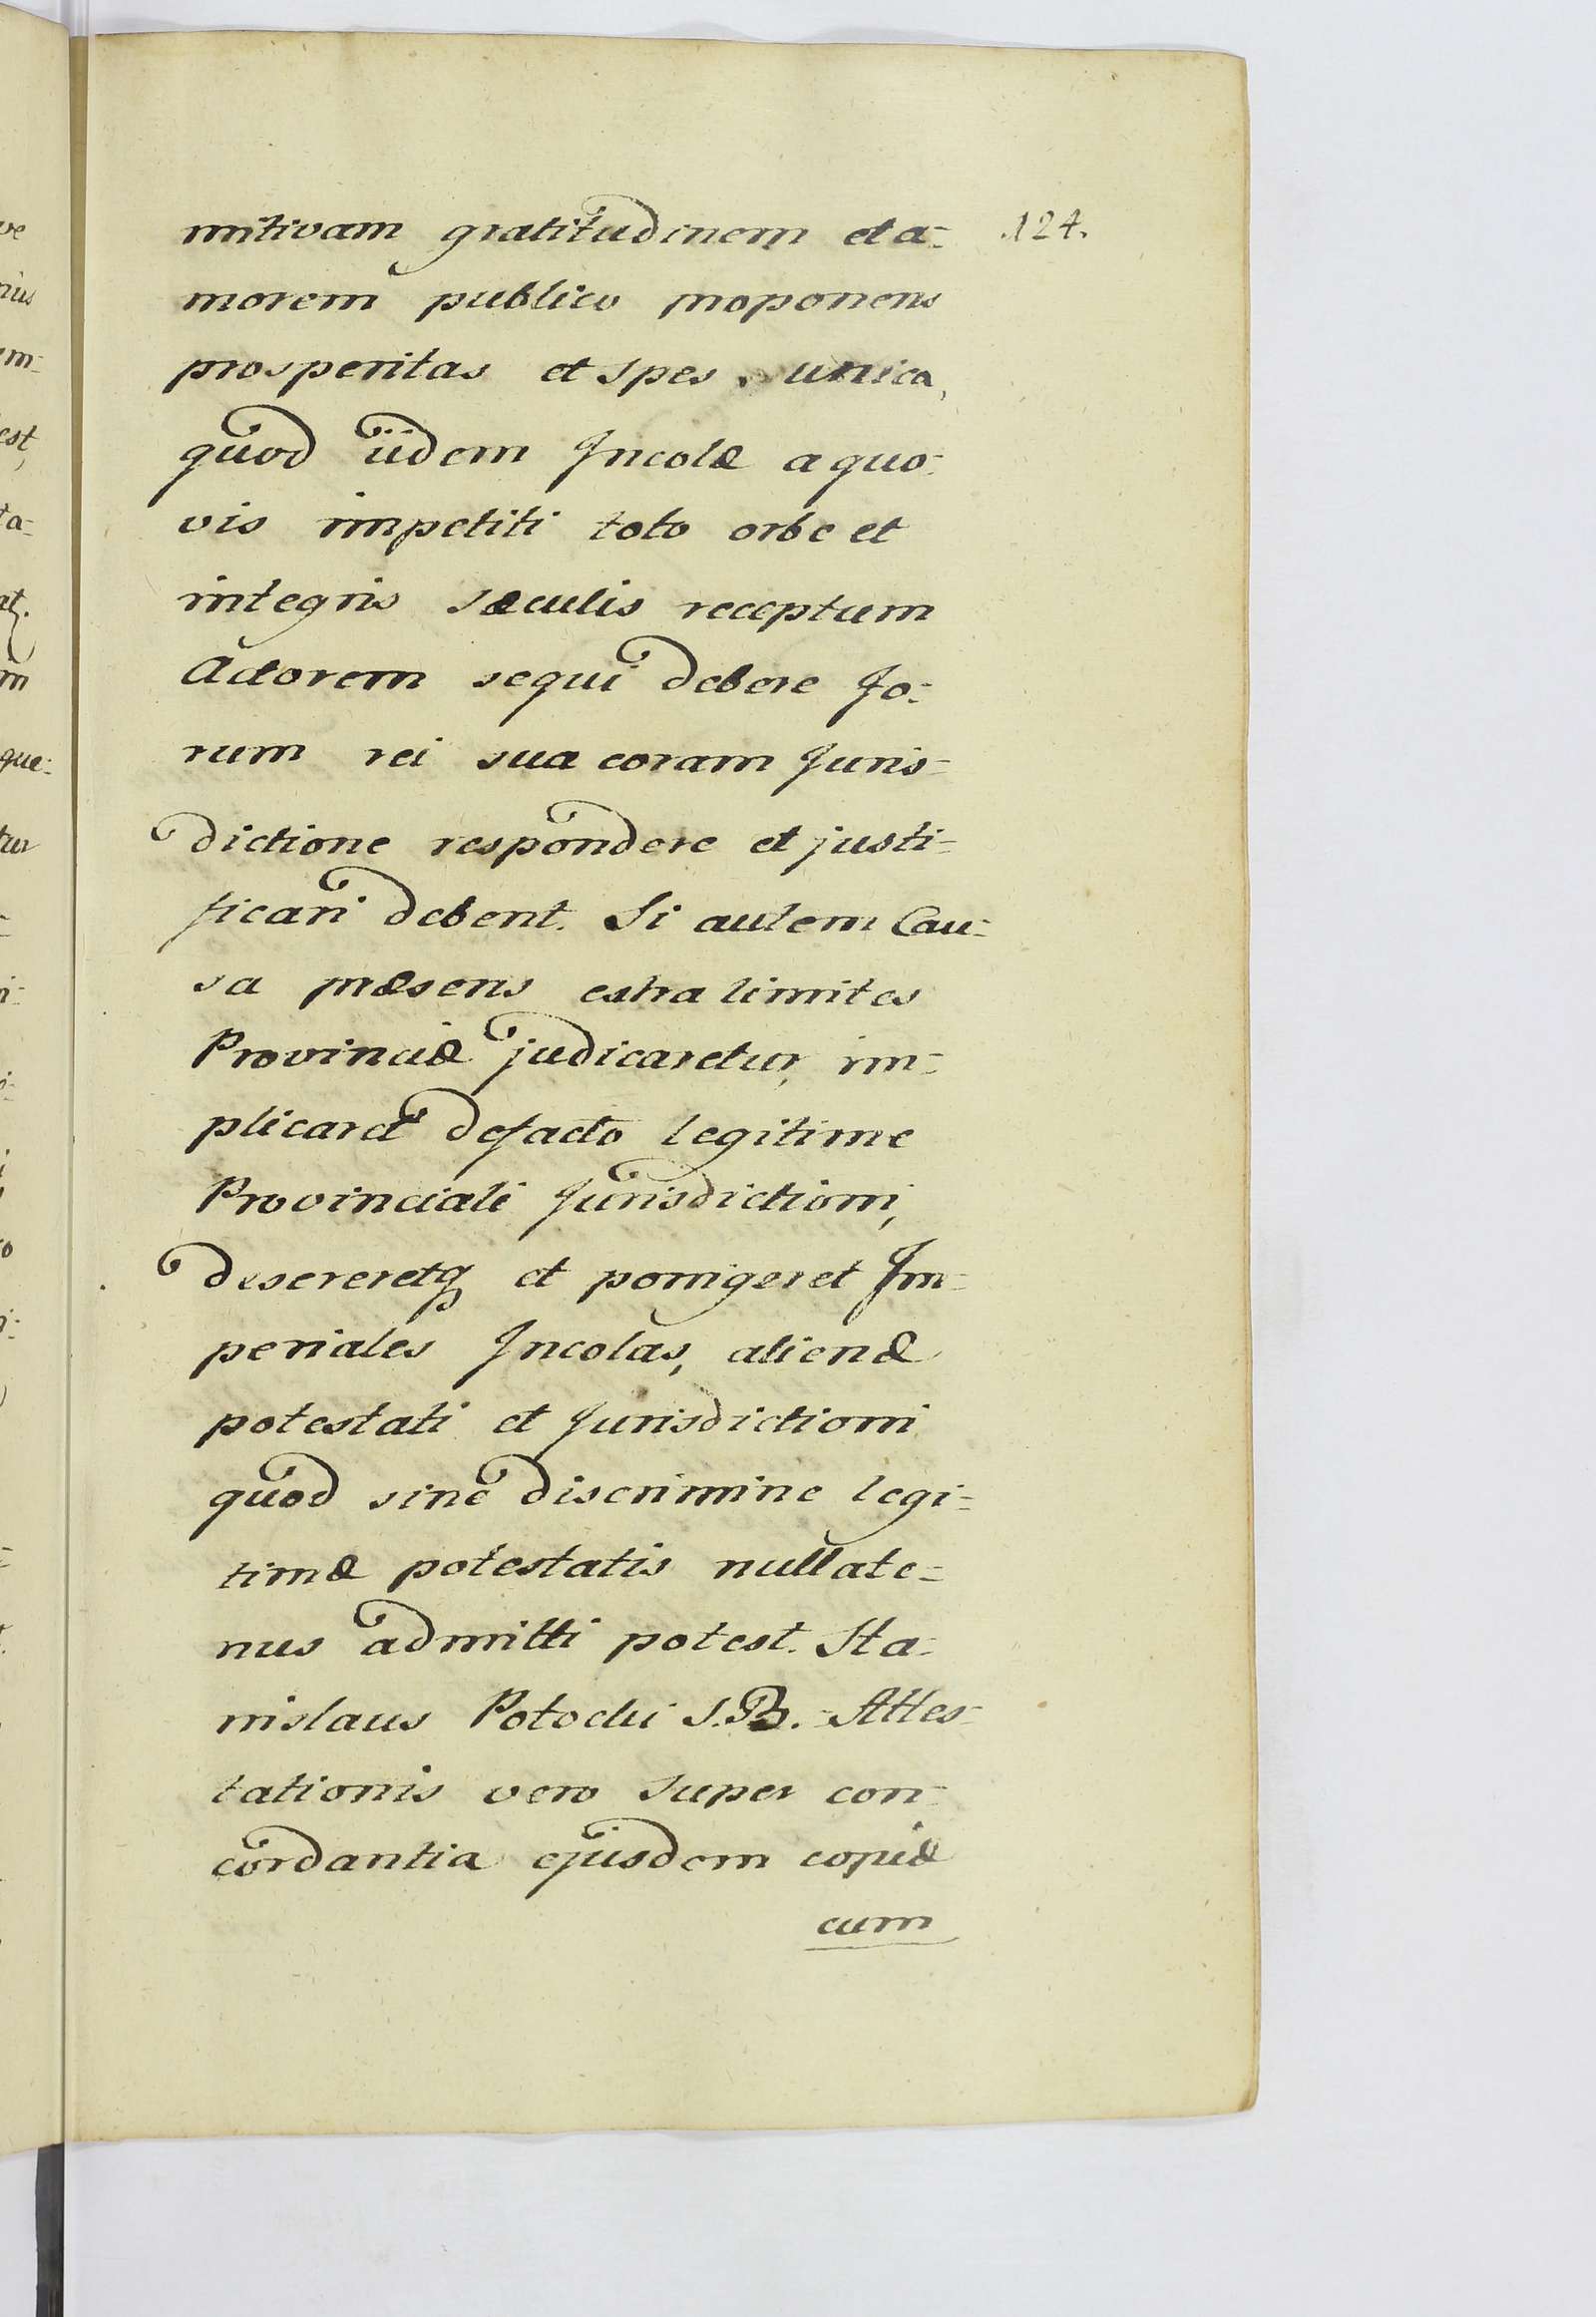 mitivam gratitudinem et a-
.124.
morem publico proponens
prosperitas et spes unica,
quod iidem Incolæ a quo-
vis impetiti toto orbe et
integris sæculis receptum
Actorem sequi debere Fo-
rum rei sua coram Juris-
dictione respondere et justi-
ficari debent. Si autem Cau-
sa præsens extra limites
Provinciæ judicaretur, im-
plicaret defacto legitime
Provinciali Jurisdictioni,
desereretq et porrigeret Im-
periales Incolas, alienæ
potestati et Jurisdictioni
quod sine discrimine legi-
timæ potestatis nullate-
nus admitti potest. Sta-
nislaus Potocki S.B. Attes-
tationis vero super con-
cordantia ejusdem copiæ
cum